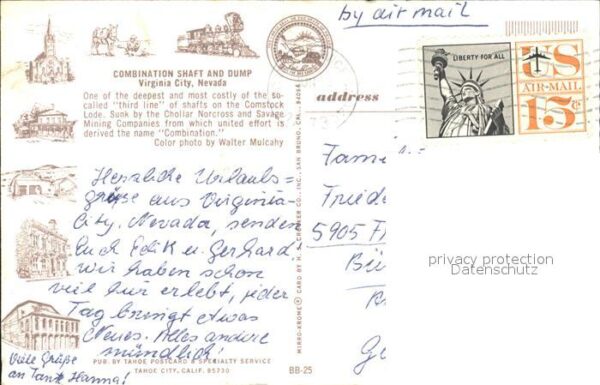 by air mail
LIBERTY FOR ALL
US
AIR-MAIL
15¢
COMBINATION SHAFT AND DUMP
Virginia City, Nevada
One of the deepest and most costly of the so-
called "third line" of shafts on the Comstock
Lode. Sunk by the Chollar Norcross and Savage
Mining Companies from which united effort is
derived the name "Combination."
Color photo by Walter Mulcahy
address
Herzliche Urlaubs=
grüße aus Virginia-
City. Nevada, senden
Euch Edik u. Gerhard,
wir haben schon
viel hier erlebt, jeder
Tag bringt etwas
Neues. Alles andere
mündlich.
Viele Grüße
an Tante Hanna!
5905
privacy protection
Datenschutz
PUB. BY TAHOE POSTCARD & SPECIALTY SERVICE
TAHOE CITY, CALIF. 85730
BB-25
MIRRO-KROME® CARD BY H. S. CROCKER CO., INC., SAN BRUNO, CAL. 94066